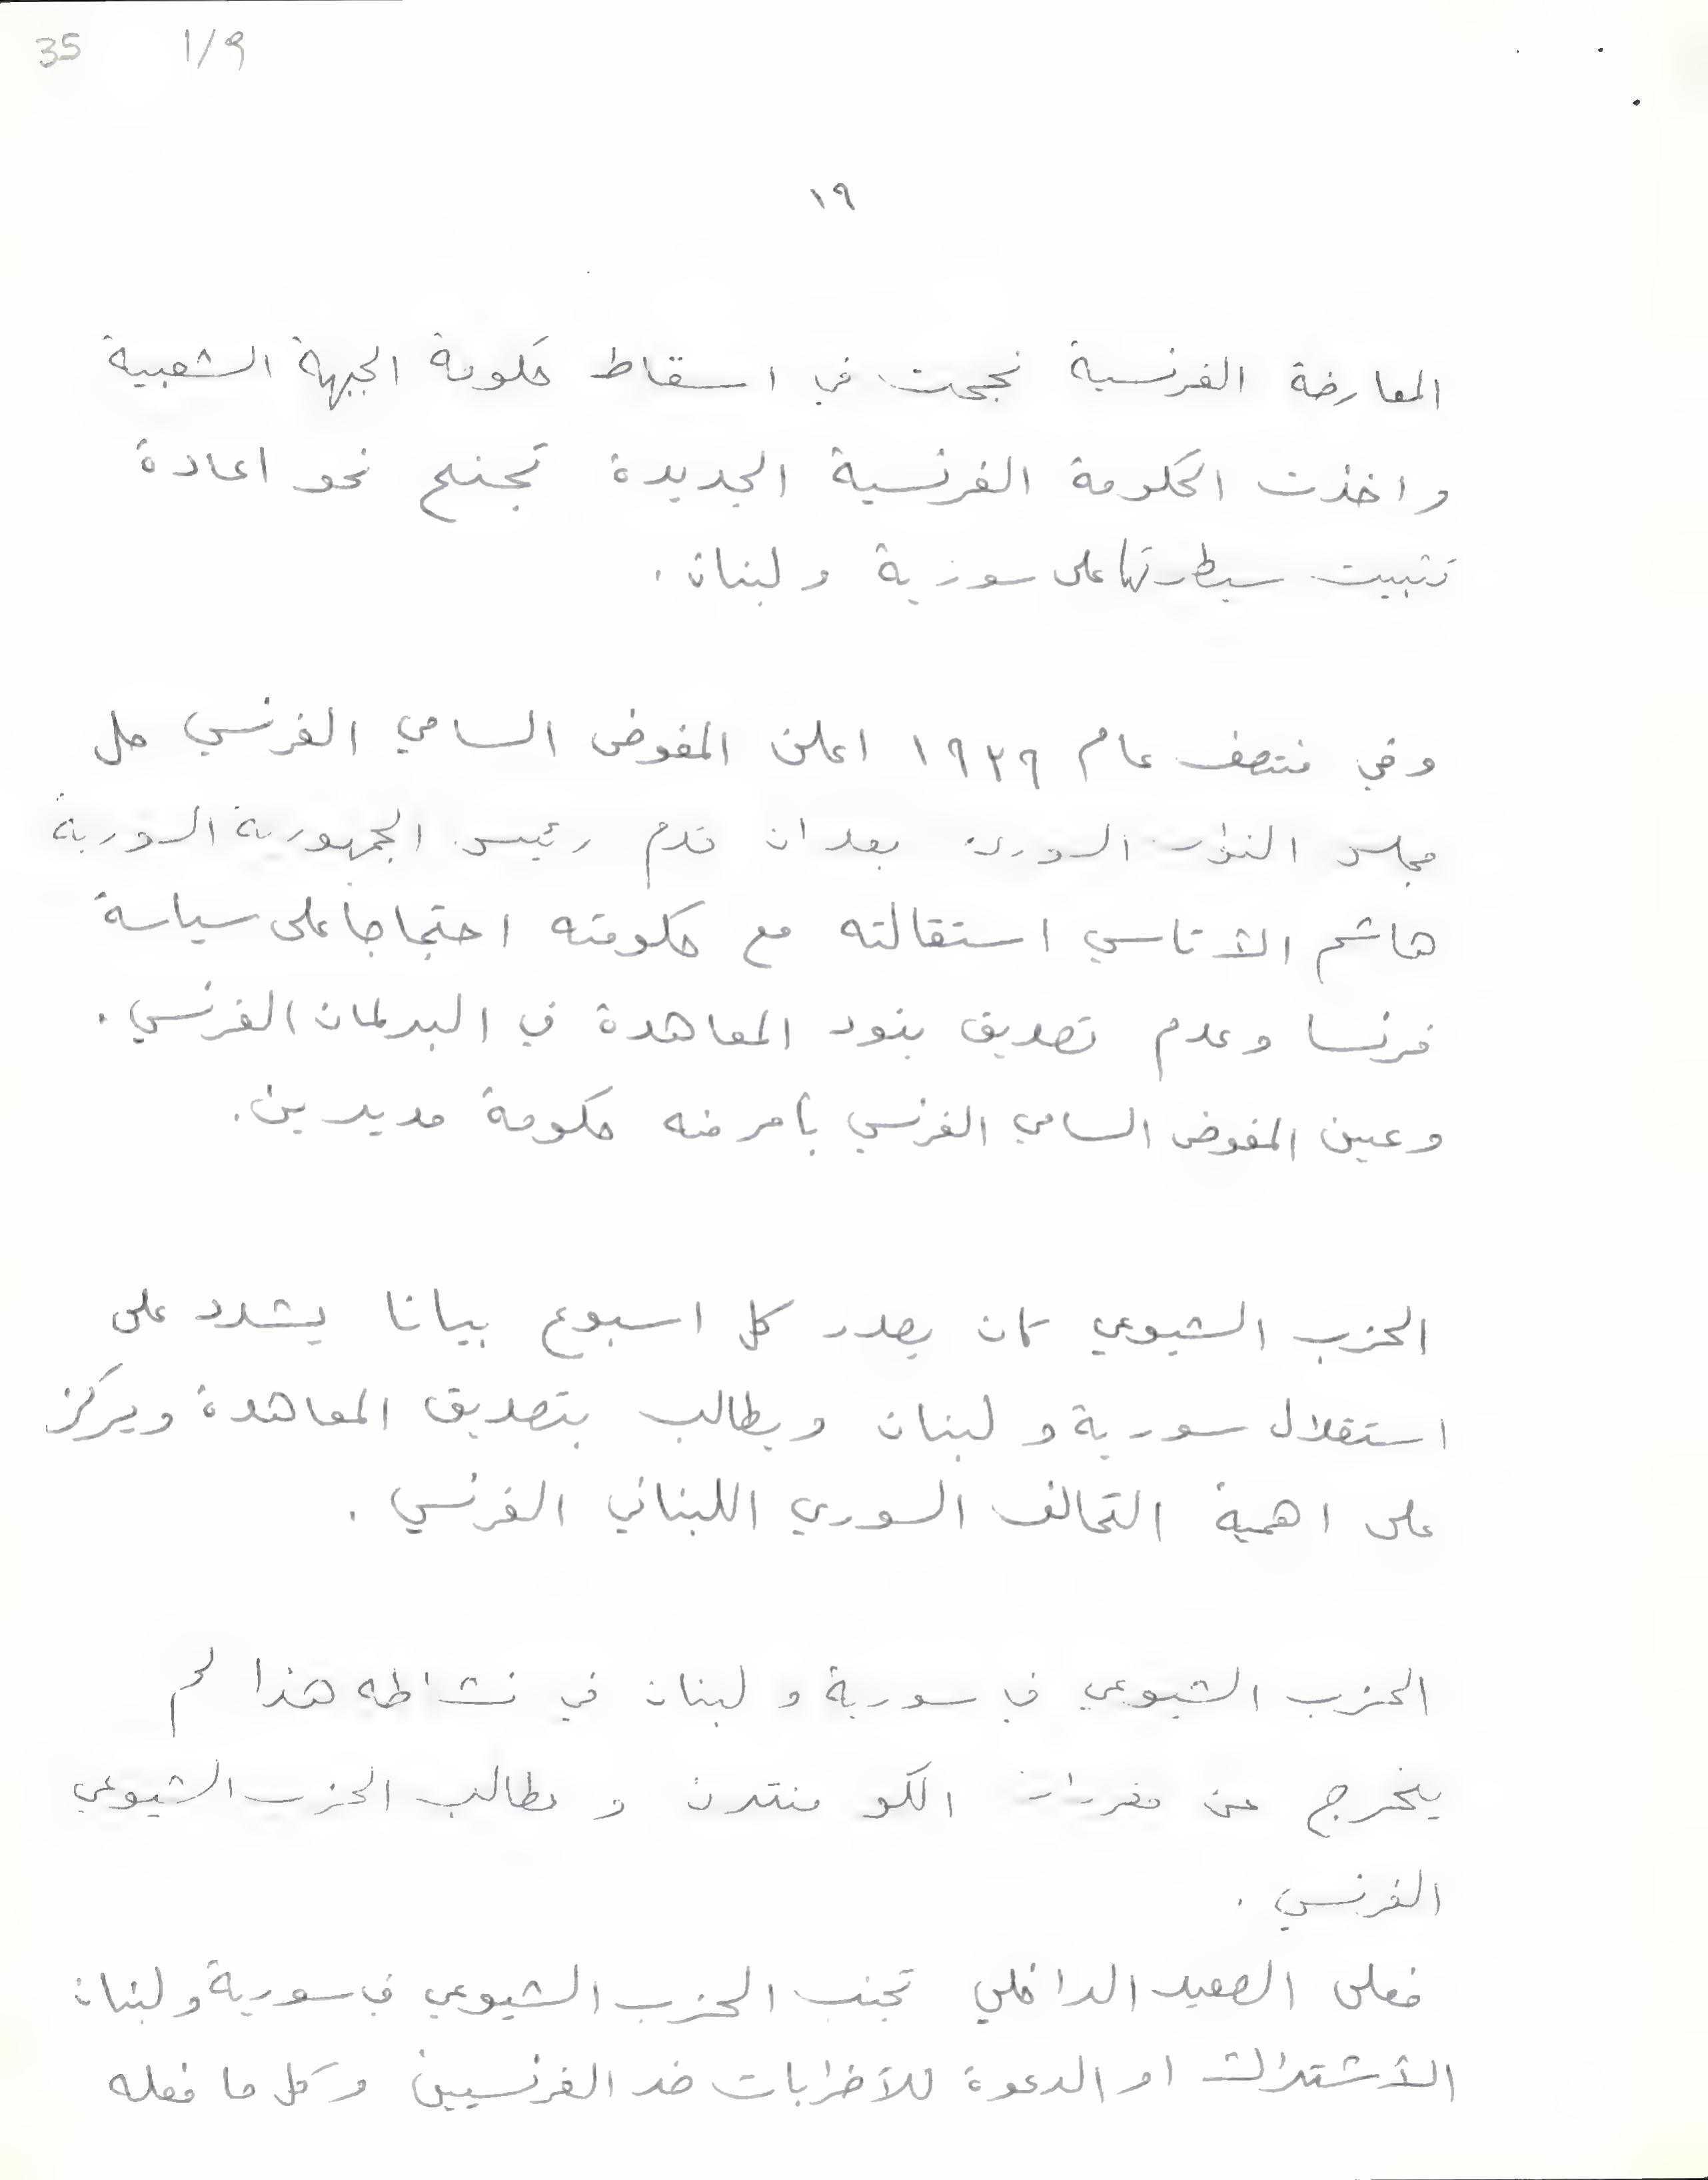 35 1/9
١٩
المعارضة الفرنسية نجحت في اسقاط حكومة الجبهة الشعبية
واخذت الحكومة الفرنسية الجديدة تجنح نحو اعادة
تثبيت سيطرتها على سورية ولبنان .
وفي منتصف عام ١٩٣٩ اعلن المفوض السامي الفرنسي حل
مجلس النواب السوري بعد ان قدم رئيس الجمهورية السورية
هاشم الأتاسي استقالته مع حكومته احتجاجاً على سياسة
فرنسا وعدم تصديق بنود المعاهدة في البرلمان الفرنسي .
وعين المفوض السامي الفرنسي بأمر منه حكومة مديرين .
الحزب الشيوعي كان يصدر كل اسبوع بيانا يشدد على
استقلال سورية ولبنان ويطالب بتصديق المعاهدة ويركز
على اهمية التحالف السوري اللبناني الفرنسي .
الحزب الشيوعي في سورية ولبنان في نشاطه هذا لم
يخرج عن مقررات الكومنترن ومطالب الحزب الشيوعي
الفرنسي .
فعلى الصعيد الداخلي تجنب الحزب الشيوعي في سورية ولبنان
الأشتراك او الدعوة للأضرابات ضد الفرنسيين وكل ما فعله